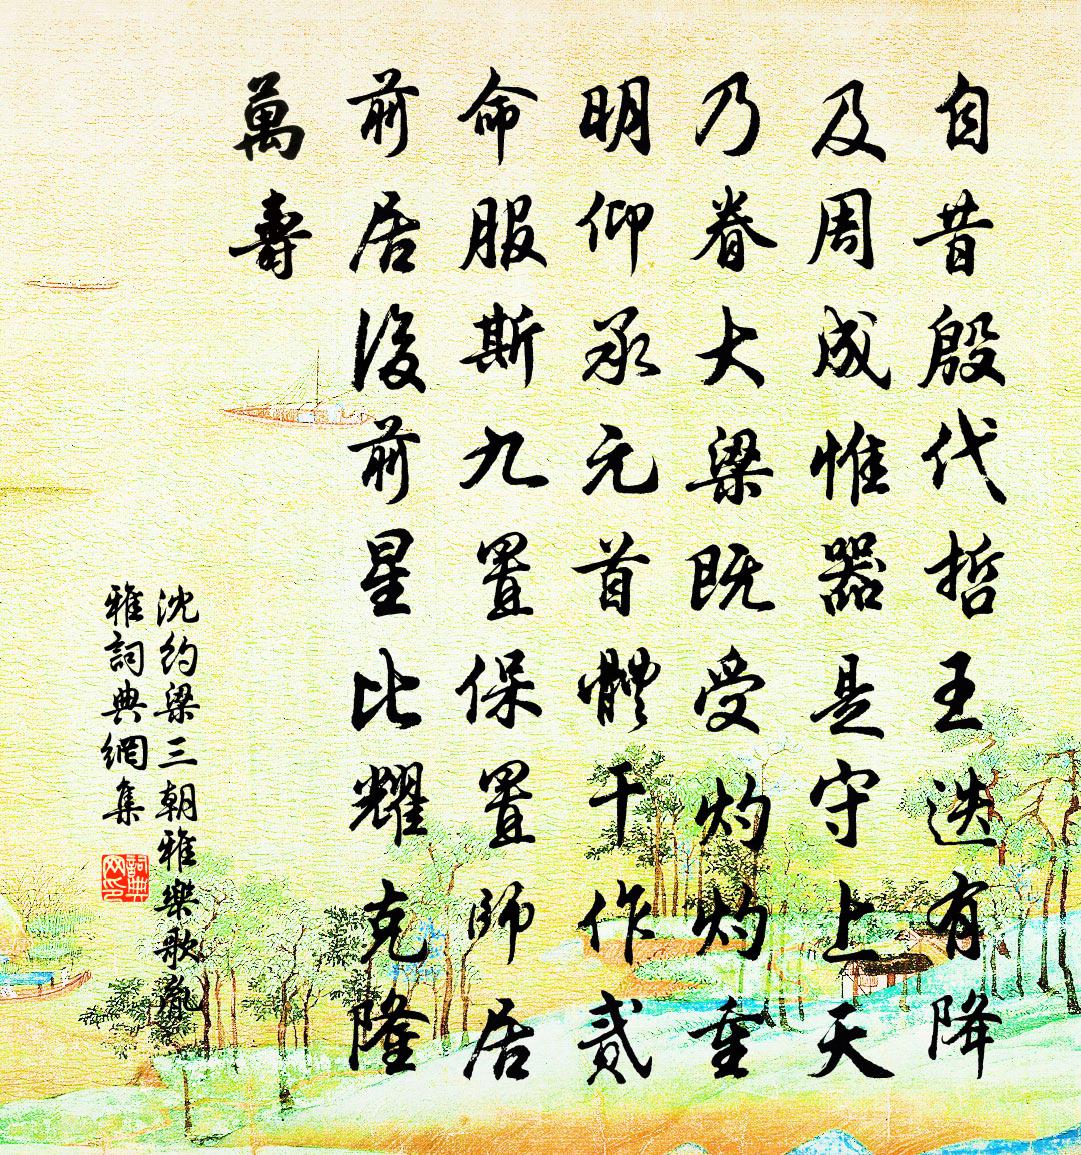 自昔殷代哲王迭有降
及周成惟器是守上天
乃眷大梁既受灼灼重
明仰承元首體干作貳
命服斯九置保置師居
前居後前星比耀克隆
萬壽
沈約梁三朝雅樂歌胤
雅詞典網集
詞典
网印